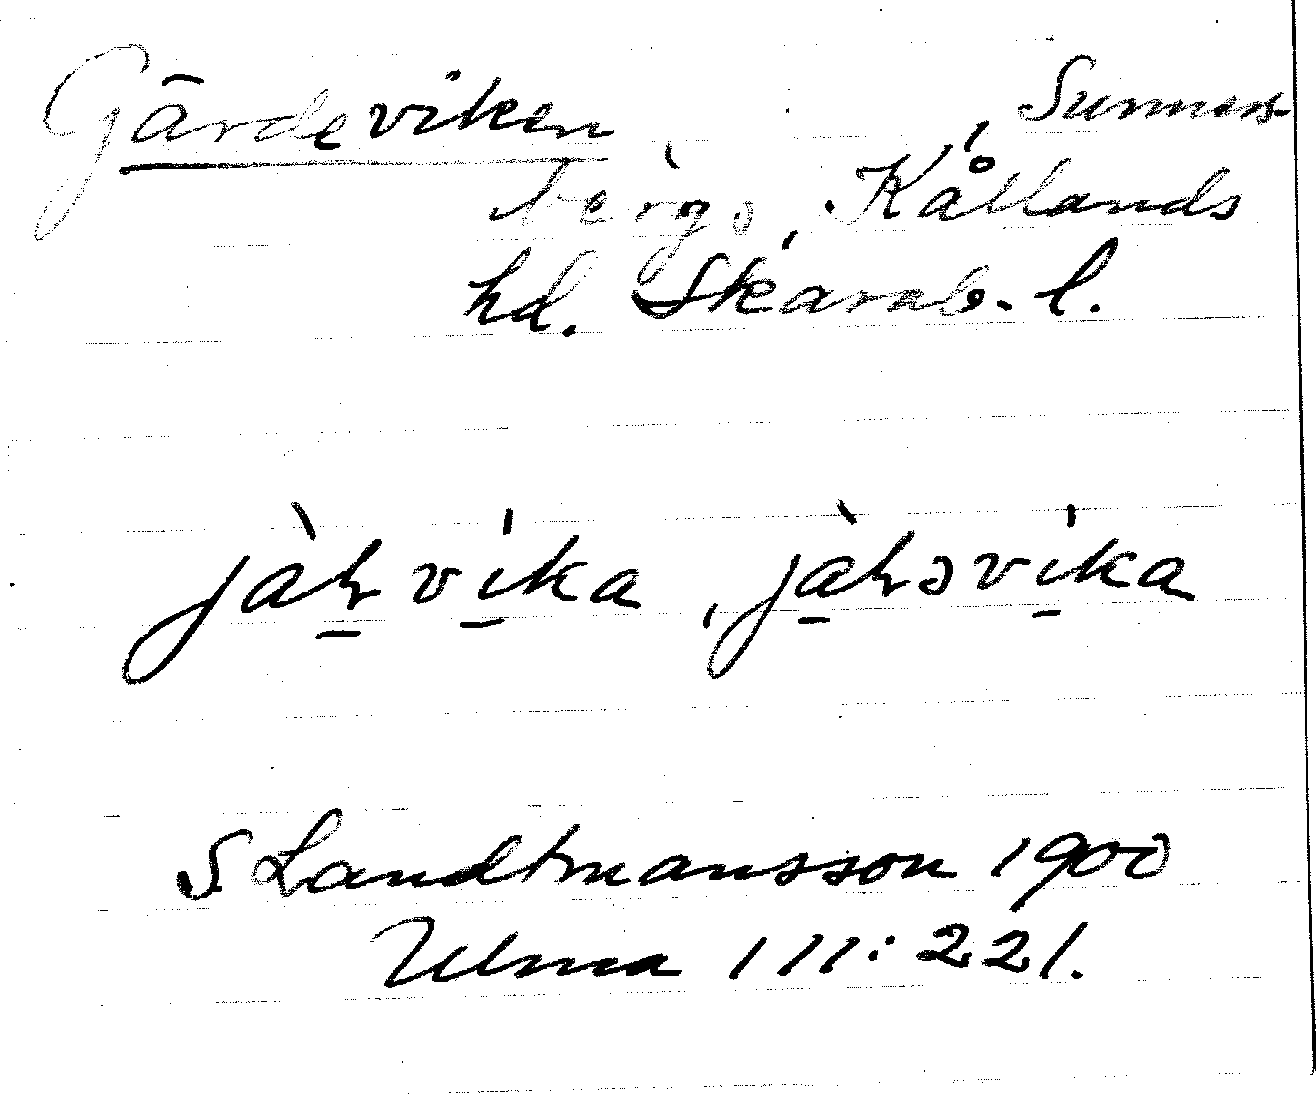 Gärdeviken, Sunners
bergs, Kållands
hd. Skarab. l.
jàḻvi̱ka, jàḻsvi̱ka
S. Landtmansson 1900
Ulma 111:221.